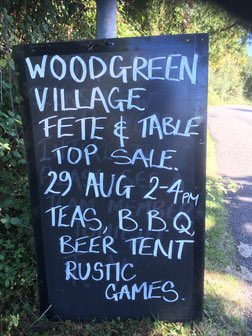 WOODGREEN
VILLAGE
FETE & TABLE
TOP SALE.
29 AUG 2-4pm
TEAS, B.B.Q,
BEER TENT
RUSTIC
GAMES.